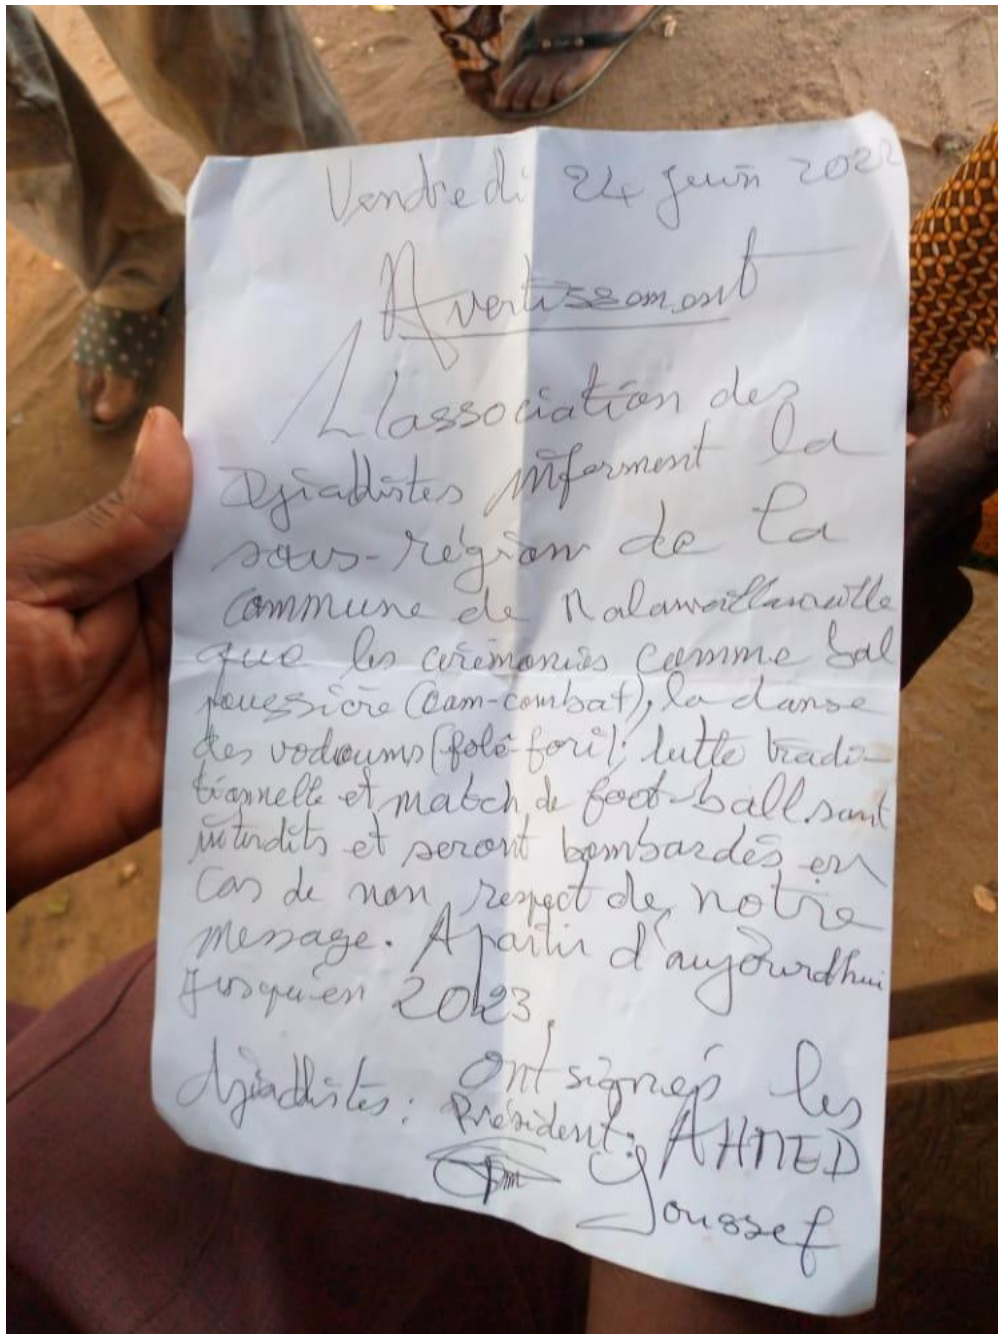 Vendredi 24 juin 2022
Avertissement
L'association des
Djiadistes informent la
sous-région de la
commune de
que les cérémonies comme bal
poussière (Dam-combat), la danse
des vodoums (folé-fori); lutte tradi-
tionnelle et match de foot-ball sont
interdits et seront bombardés en
cas de non respect de notre
message. A partir d'aujourdhui
jusqu'en 2023.
Ont signés les
djiadistes: Président: AHMED
Youssef